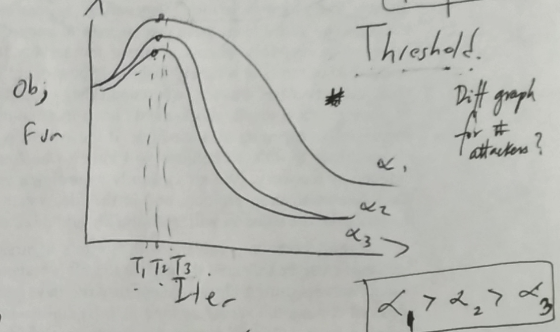 Threshold.
Obj
Fun
#
Diff graph
for #
attackers?
α1
α2
α3
T1 T2 T3
Iter
α1 > α2 > α3